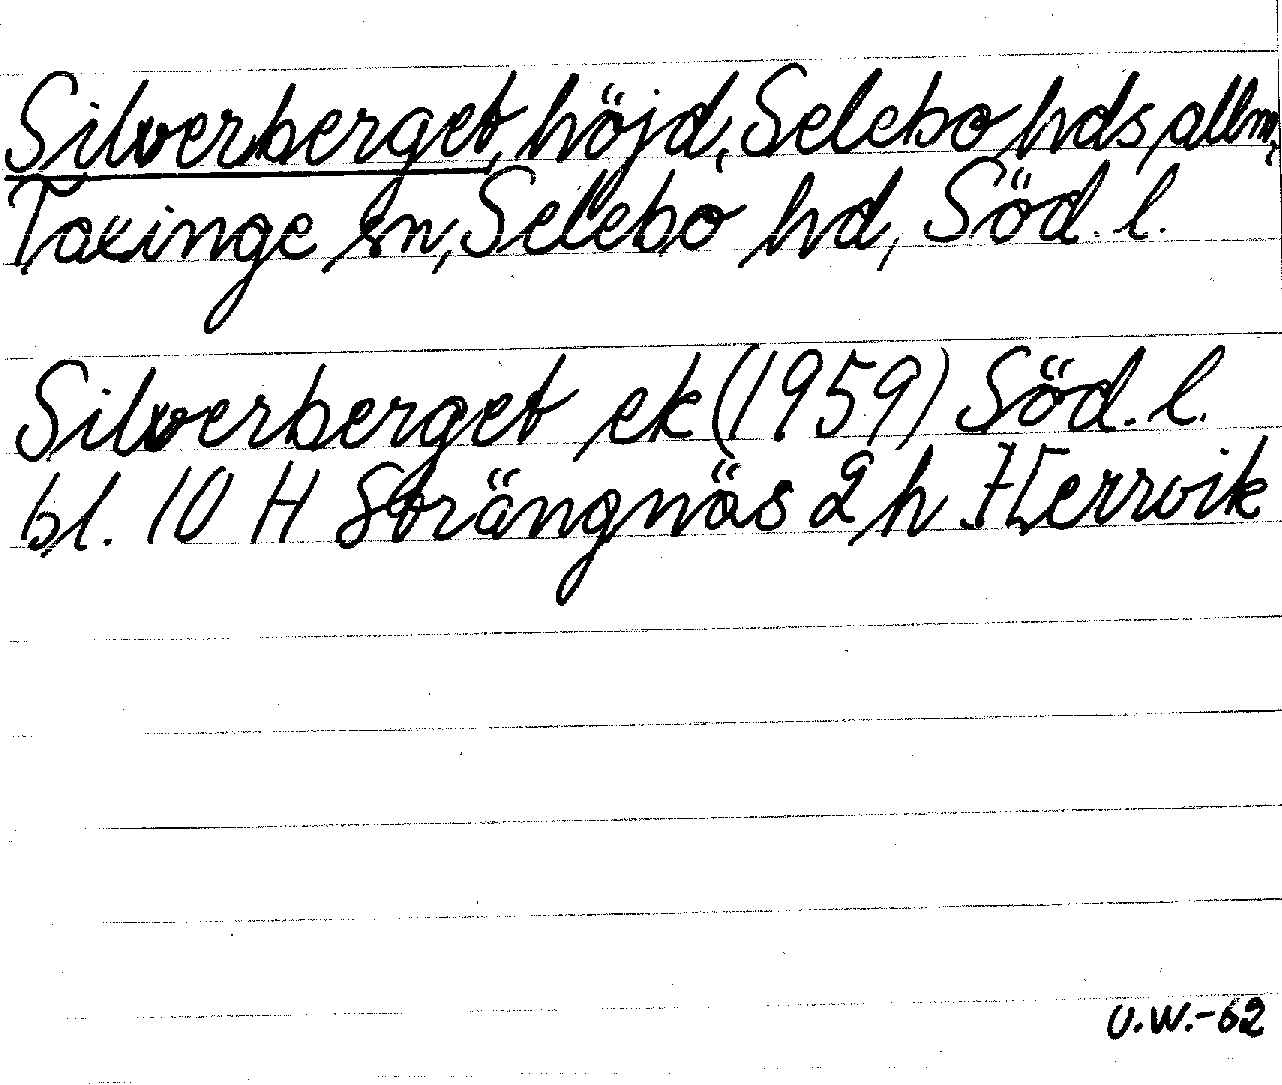 Silverberget, höjd, Selebo hds allm,
Taxinge sn, Selebo hd, Söd. l.
Silverberget ek (1959) Söd. l.
bl. 10 H Strängnäs 2 h Herrvik
U.W.-62